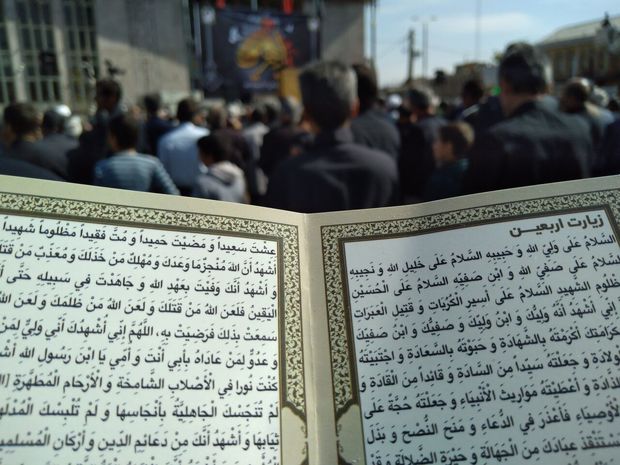 زیارت اربعین
السَّلامُ عَلَى وَلِيِّ الله وَ حَبيبِهِ السَّلامُ عَلَى خَليلِ الله وَ نَجيبِهِ
السَّلامُ عَلَى صَفِيِّ الله وَ ابْنِ صَفِيِّهِ السَّلامُ عَلَى الْحُسَيْنِ
الْمَظْلُومِ الشَّهيدِ السَّلامُ عَلَى أَسيرِ الْكُرُباتِ وَ قَتيلِ الْعَبَراتِ
إِنِّي أَشْهَدُ أَنَّهُ وَلِيُّكَ وَ ابْنُ وَلِيِّكَ وَ صَفِيُّكَ وَ ابْنُ صَفِيِّكَ
بِكَرامَتِكَ أَكْرَمْتَهُ بِالشَّهادَةِ وَ حَبَوْتَهُ بِالسَّعادَةِ وَ اجْتَبَيْتَهُ
الْوِلادَةِ وَ جَعَلْتَهُ سَيِّداً مِنَ السَّادَةِ وَ قائِداً مِنَ الْقادَةِ وَ
الذَّادَةِ وَ أَعْطَيْتَهُ مَواريثَ الْأَنْبِياءِ وَ جَعَلْتَهُ حُجَّةً عَلَى
الْأَوْصِياءِ فَأَعْذَرَ فِي الدُّعاءِ وَ مَنَحَ النُّصْحَ وَ بَذَلَ
لِيَسْتَنْقِذَ عِبادَكَ مِنَ الْجَهالَةِ وَ حَيْرَةِ الضَّلالَةِ وَ قَدْ
عِشْتَ سَعيداً وَ مَضَيْتَ حَميداً وَ مُتَّ فَقيداً مَظْلُوماً شَهيداً
أَشْهَدُ أَنَّ اللهَ مُنْجِزٌ ما وَعَدَكَ وَ مُهْلِكٌ مَنْ خَذَلَكَ وَ مُعَذِّبٌ مَنْ قَتَلَكَ
وَ أَشْهَدُ أَنَّكَ وَفَيْتَ بِعَهْدِ اللهِ وَ جاهَدْتَ فِي سَبيلِهِ حَتَّى
الْيَقينُ فَلَعَنَ اللهُ مَنْ قَتَلَكَ وَ لَعَنَ اللهُ مَنْ ظَلَمَكَ وَ لَعَنَ
سَمِعَتْ بِذلِكَ فَرَضِيَتْ بِهِ، اللَّهُمَّ إِنِّي أُشْهِدُكَ أَنِّي وَلِيٌّ لِمَنْ
وَ عَدُوٌّ لِمَنْ عاداهُ بِأَبي أَنْتَ وَ أُمِّي يَا ابْنَ رَسُولِ اللهِ أَشْهَدُ
كُنْتَ نُوراً فِي الْأَصْلابِ الشَّامِخَةِ وَ الْأَرْحامِ الْمُطَهَّرَةِ
لَمْ تُنَجِّسْكَ الْجاهِلِيَّةُ بِأَنْجاسِها وَ لَمْ تُلْبِسْكَ الْمُدْلَهِمَّاتُ
ثِيابِها وَ أَشْهَدُ أَنَّكَ مِنْ دَعائِمِ الدِّينِ وَ أَرْكانِ الْمُسْلِمينَ